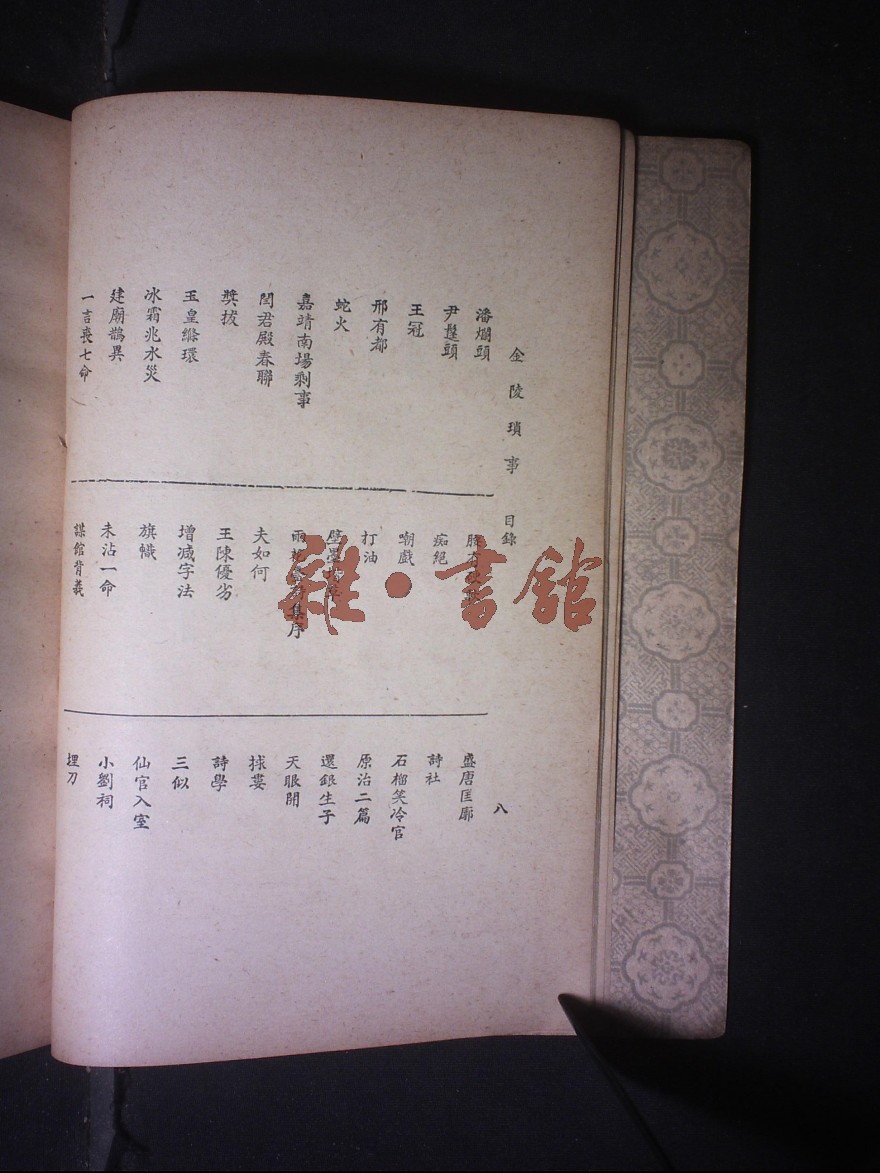 金陵瑣事 目錄
八
潘爛頭
尹蓬頭
王冠
邢有都
蛇火
嘉靖南場剩事
閻君殿春聯
獎拔
玉皇縧環
冰霜兆水災
建廟鵲異
一言喪七命
痴絕
嘲戲
打油
集序
夫如何
王陳優劣
增減字法
旗幟
未沾一命
謀館背義
盛唐匡廓
詩社
石榴笑冷官
原治二篇
還銀生子
天眼開
捄婁
詩學
三似
仙官入室
小劉祠
埋刀
雜·書館